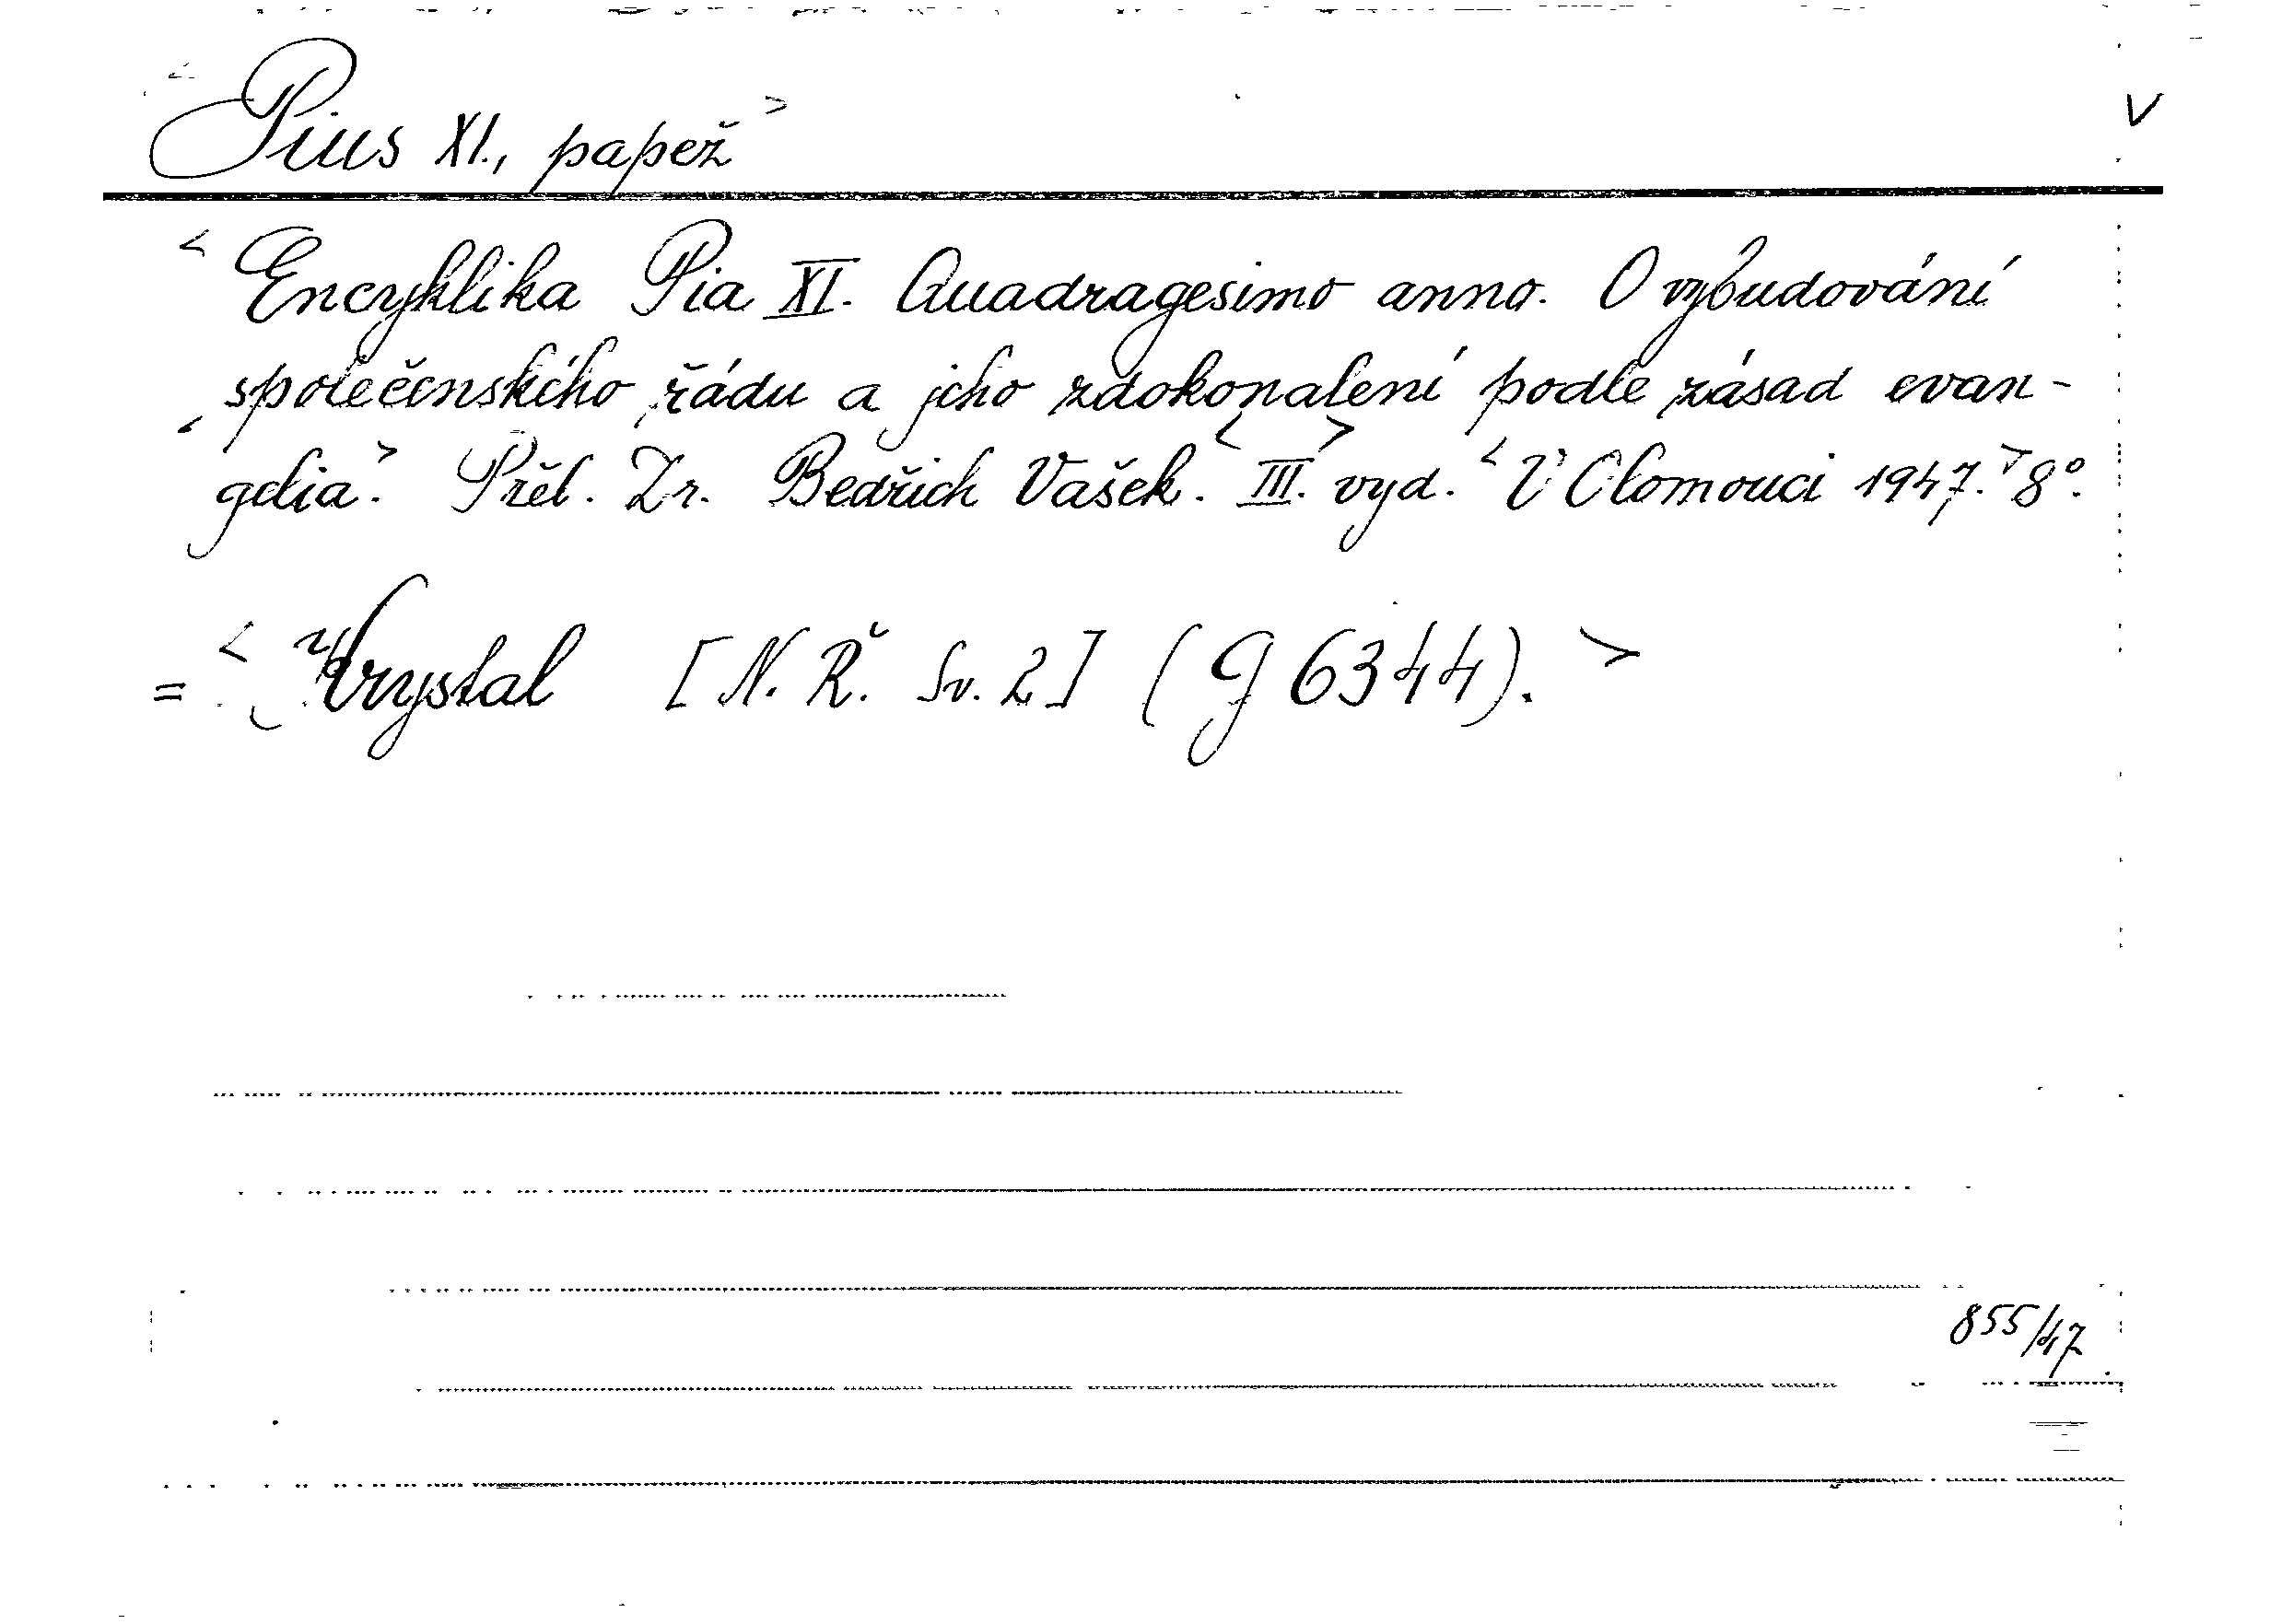 < Pius XI., papež > V
< Encyklika Pia XI. Quadragesimo anno. O vybudování
společenského řádu a jeho zdokonalení podle zásad evan-
gelia.> Přel. Dr. Bedřich Vašek. <III.> vyd. <V Olomouci 1947.> 8°.
= < Krystal [N. Ř. Sv. 2] (G 6344). >
855/47